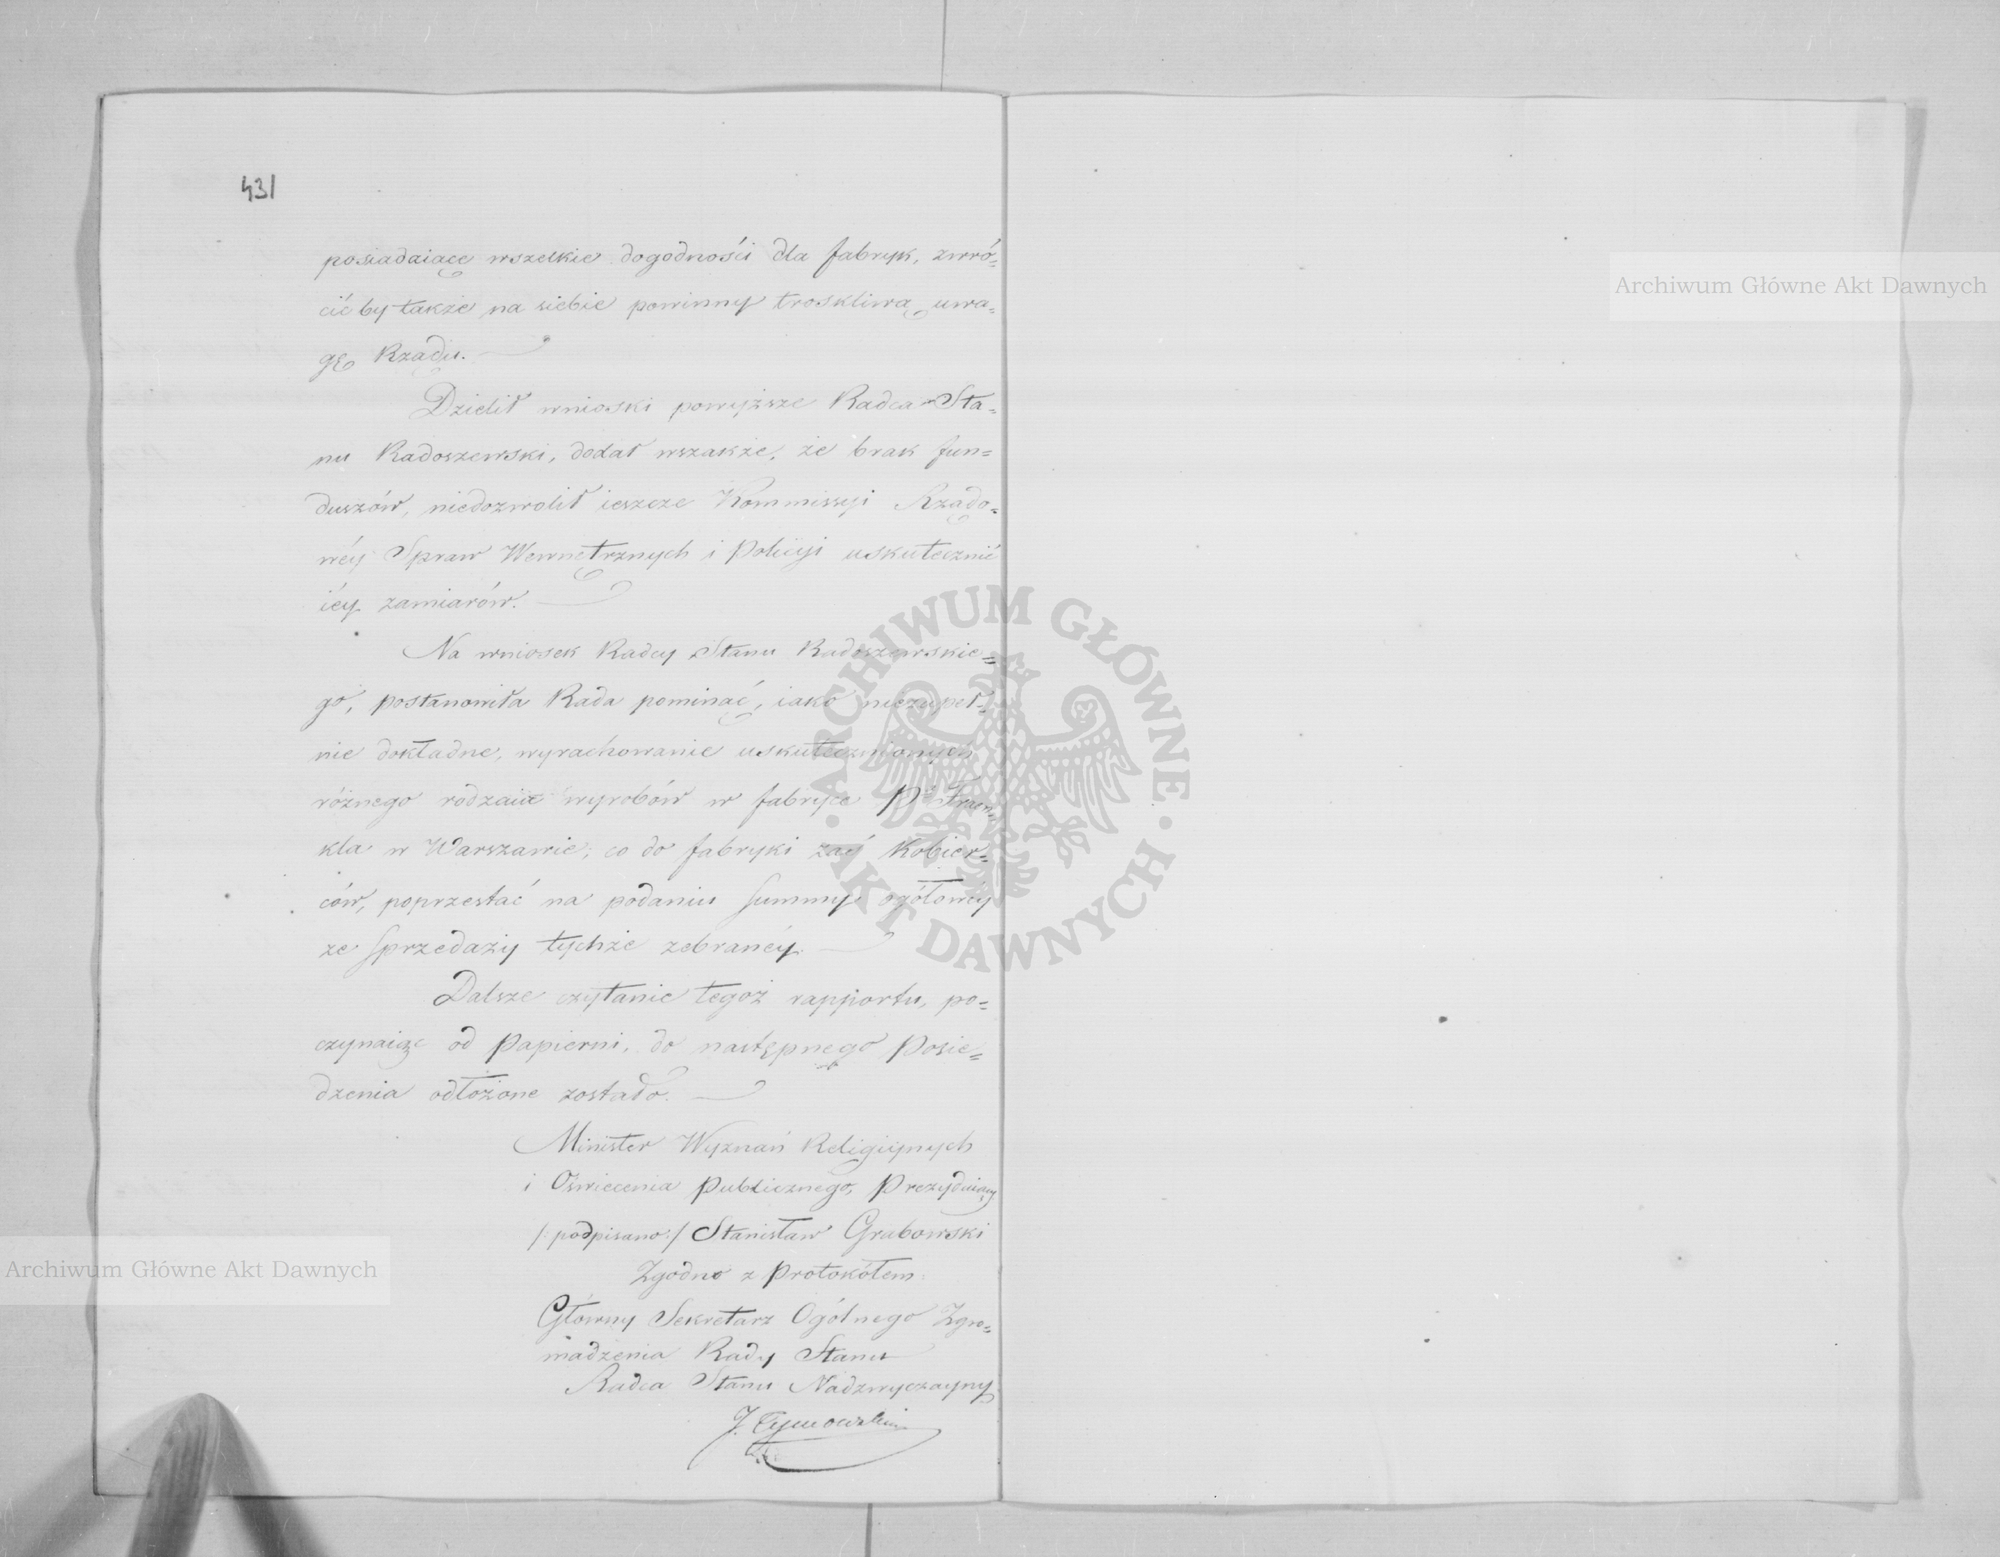 431
posiadaiące wszelkie dogodności dla fabryk, zwró=
cić by także na siebie powinny troskliwą uwa=
gę Rządu.
Dzielił wnioski powyższe Radca Sta=
nu Radoszewski, dodał wszakże, że brak fun=
duszów, niedozwolił ieszcze Kommissyi Rządo=
wéy Spraw Wewnętrznych i Policyi uskutecznić
iéy zamiarów.
Na wniosek Radcy Stanu Radoszewskie=
go, postanowiła Rada pominąć, iako niezupeł=
nie dokładne, wyrachowanie uskutecznionych
różnego rodzaiu wyrobów w fabryce Pa Fraen=
kla w Warszawie; co do fabryki zaś Kobier=
ców, poprzestać na podaniu Summy ogółowéy
ze Sprzedaży tychże zebranéy.
Dalsze czytanie tegoż rapportu, po=
czynaiąc od Papierni, do następnego Posie=
dzenia odłożone zostało.
Minister Wyznań Religiynych
i Oświecenia Publicznego, Prezyduiący
/:podpisano:/ Stanisław Grabowski
Zgodno z Protokółem
Główny Sekretarz Ogólnego Zgro=
madzenia Rady Stanu
Radca Stanu Nadzwyczayny
J. Tymowski
Archiwum Główne Akt Dawnych
Archiwum Główne Akt Dawnych
ARCHIWUM GŁÓWNE · AKT DAWNYCH ·